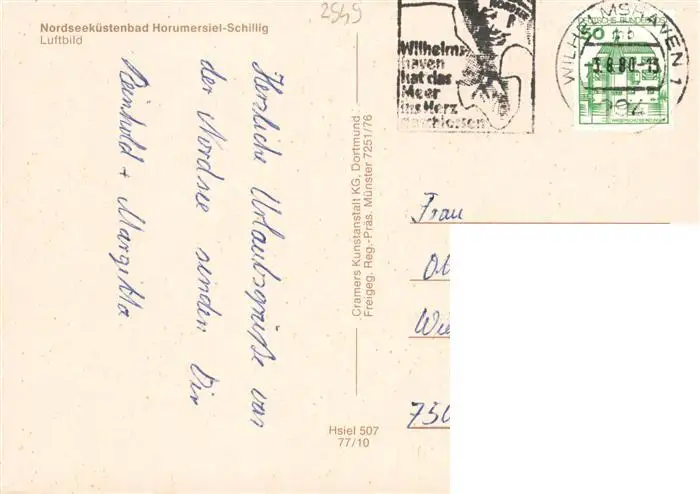 Nordseeküstenbad Horumersiel-Schillig
Luftbild
2949
Herzliche Urlaubsgrüße von
der Nordsee senden Dir
Reinhold + Margitta
Cramers Kunstanstalt KG, Dortmund
Freigeg. Reg.-Präs. Münster 7251/76
Hsiel 507
77/10
Wilhelms-
haven
hat das
Meer
ins Herz
geschlossen
DEUTSCHE BUNDESPOST
50
WILHELMSHAVEN 1
-3.8.80-13
Frau
Wie
750